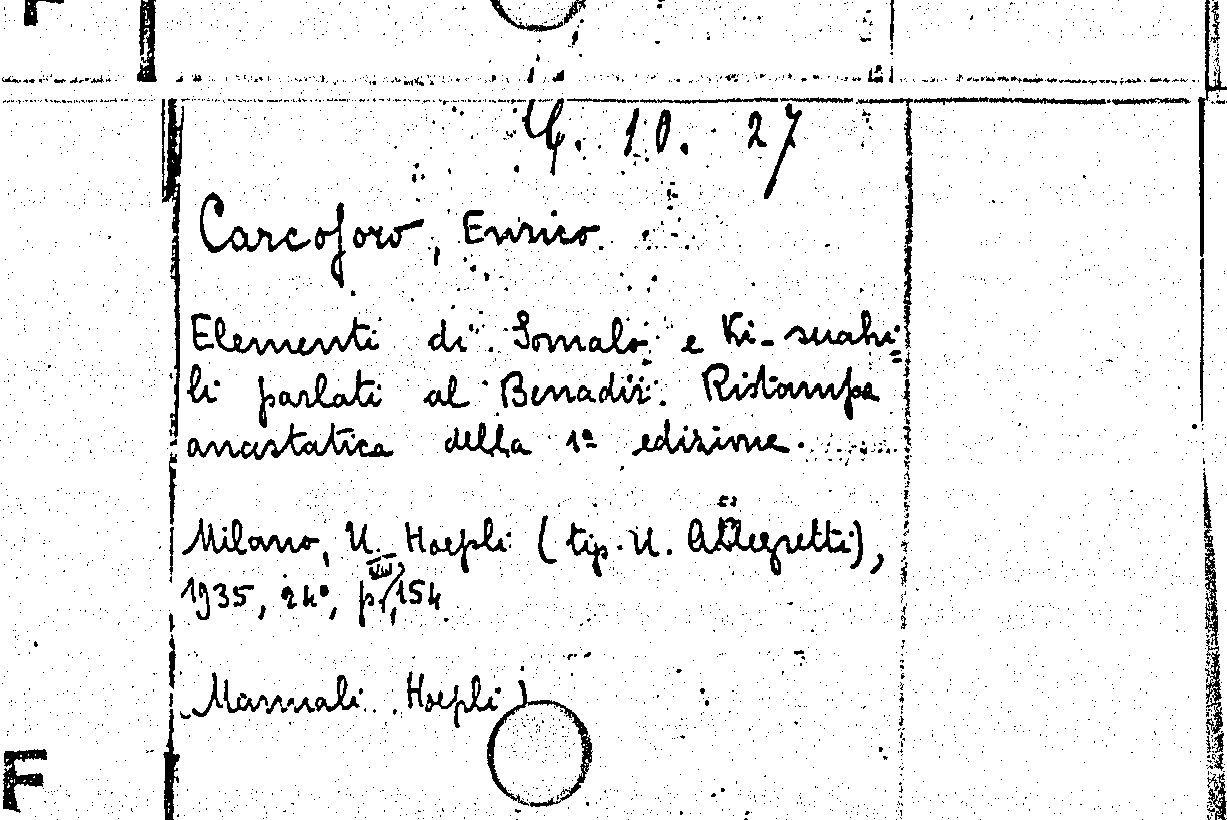 F
10. 27
Carcoforo, Enrico
Elementi di Somalo e Ki-suahi=
li parlati al Benadir. Ristampa
anastatica della 1ª edizione.
Milano, U. Hoepli (tip. U. Allegretti),
1935, 24º, p. VIII, 154
Manuali Hoepli)
F